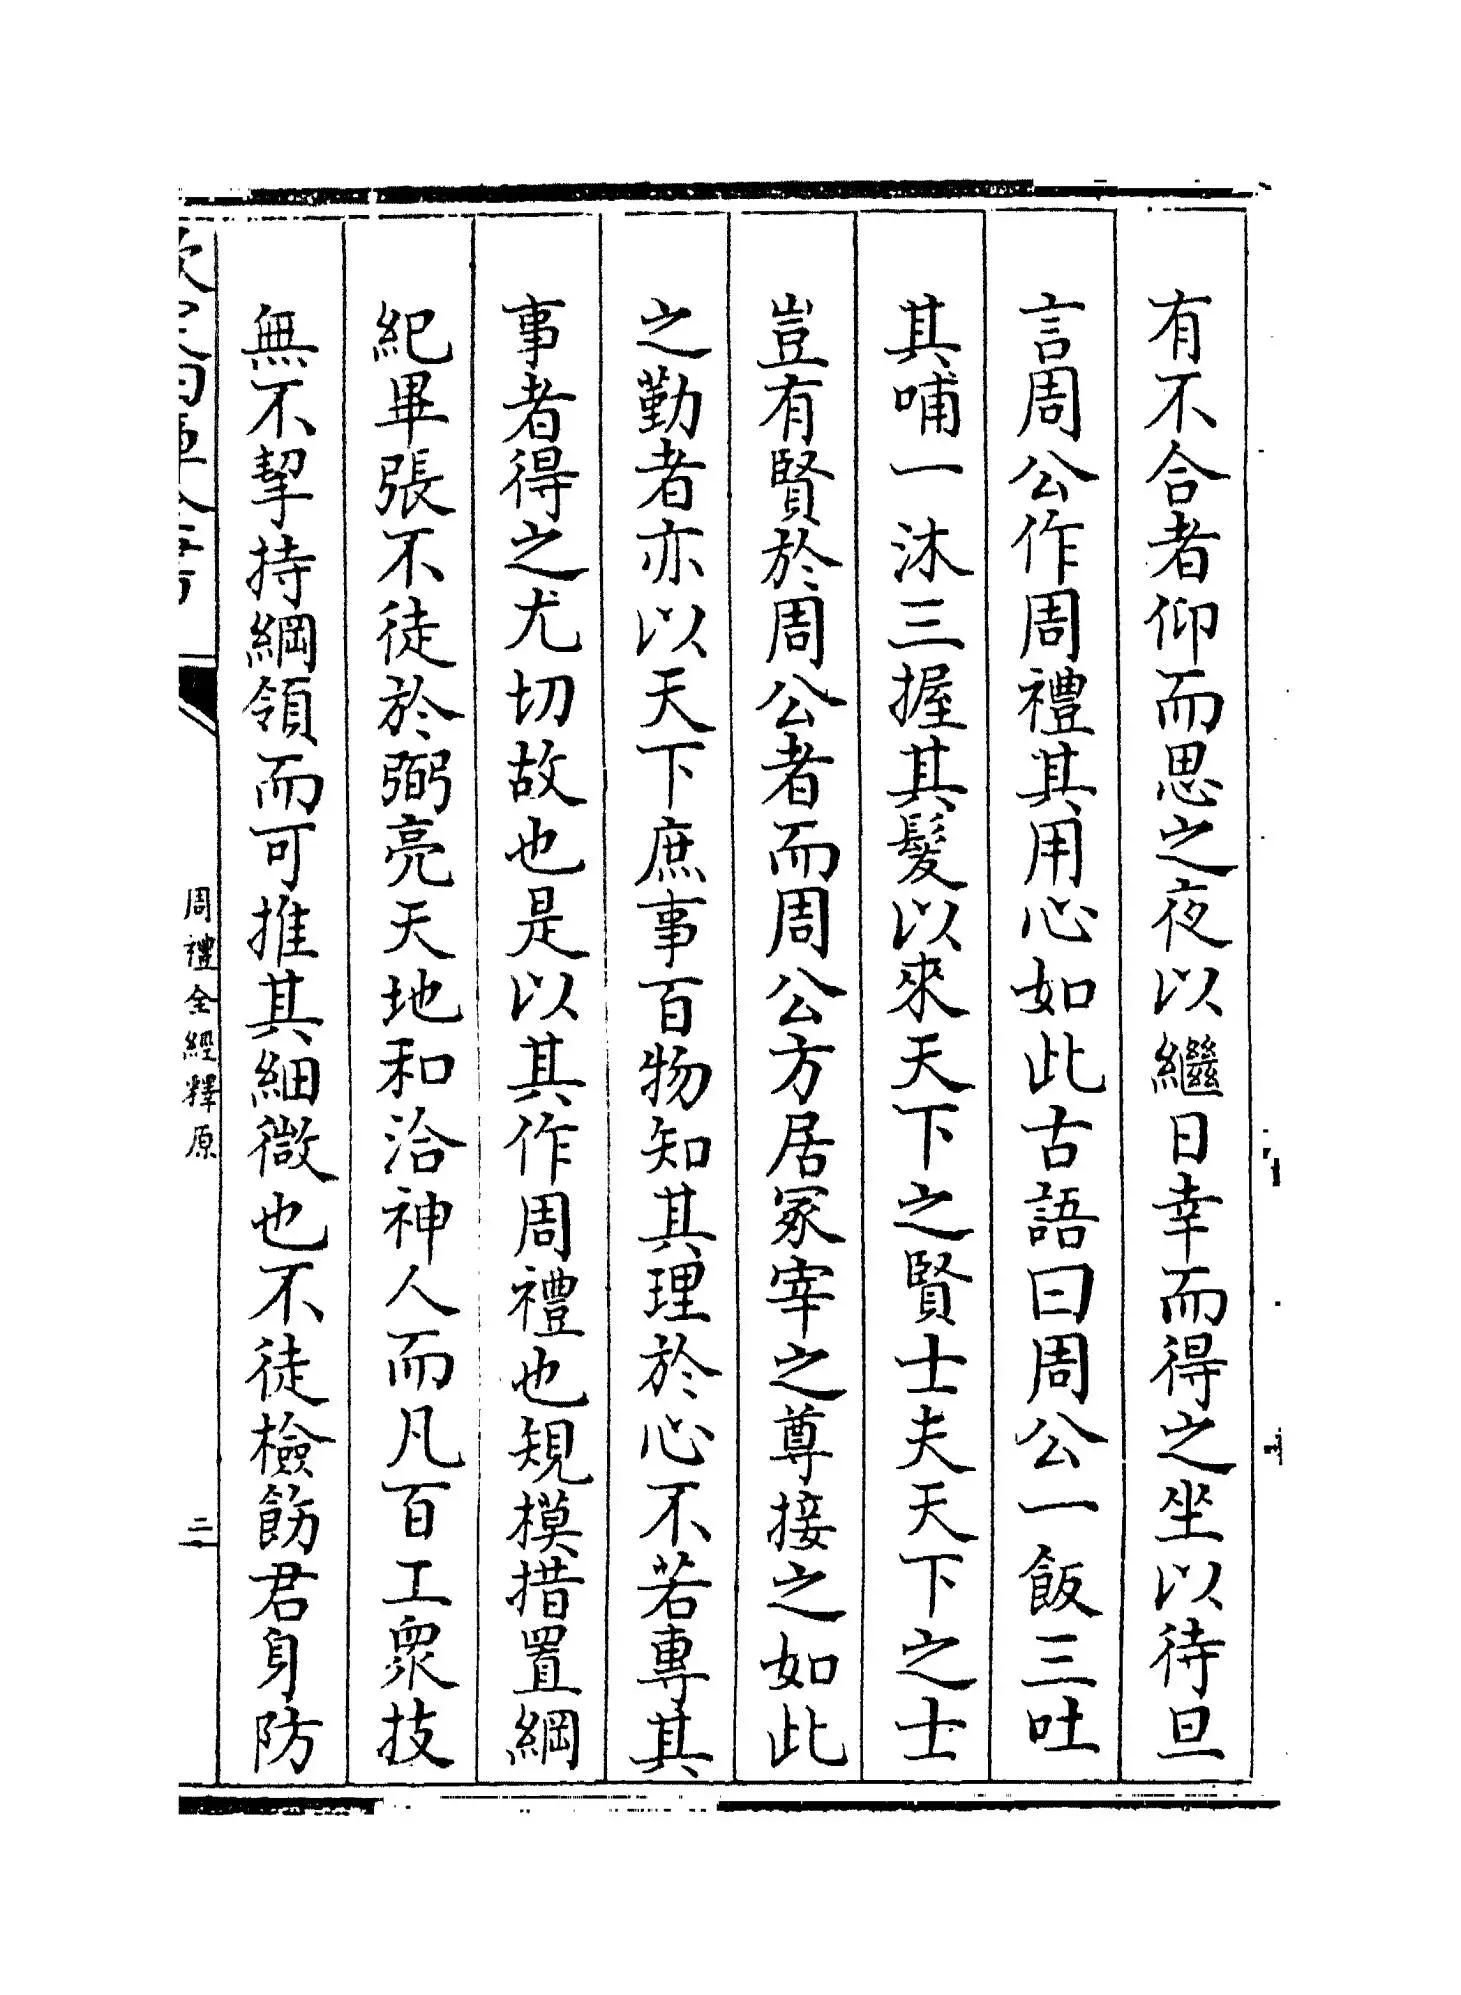 有不合者仰而思之夜以繼日幸而得之坐以待旦
言周公作周禮其用心如此古語曰周公一飯三吐
其哺一沐三握其髮以來天下之賢士夫天下之士
豈有賢於周公者而周公方居冢宰之尊接之如此
之勤者亦以天下庶事百物知其理於心不若專其
事者得之尤切故也是以其作周禮也規模措置綱
紀畢張不徒於弼亮天地和洽神人而凡百工衆技
無不挈持綱領而可推其細微也不徒檢飭君身防
欽定四庫全書
周禮全經釋原
二